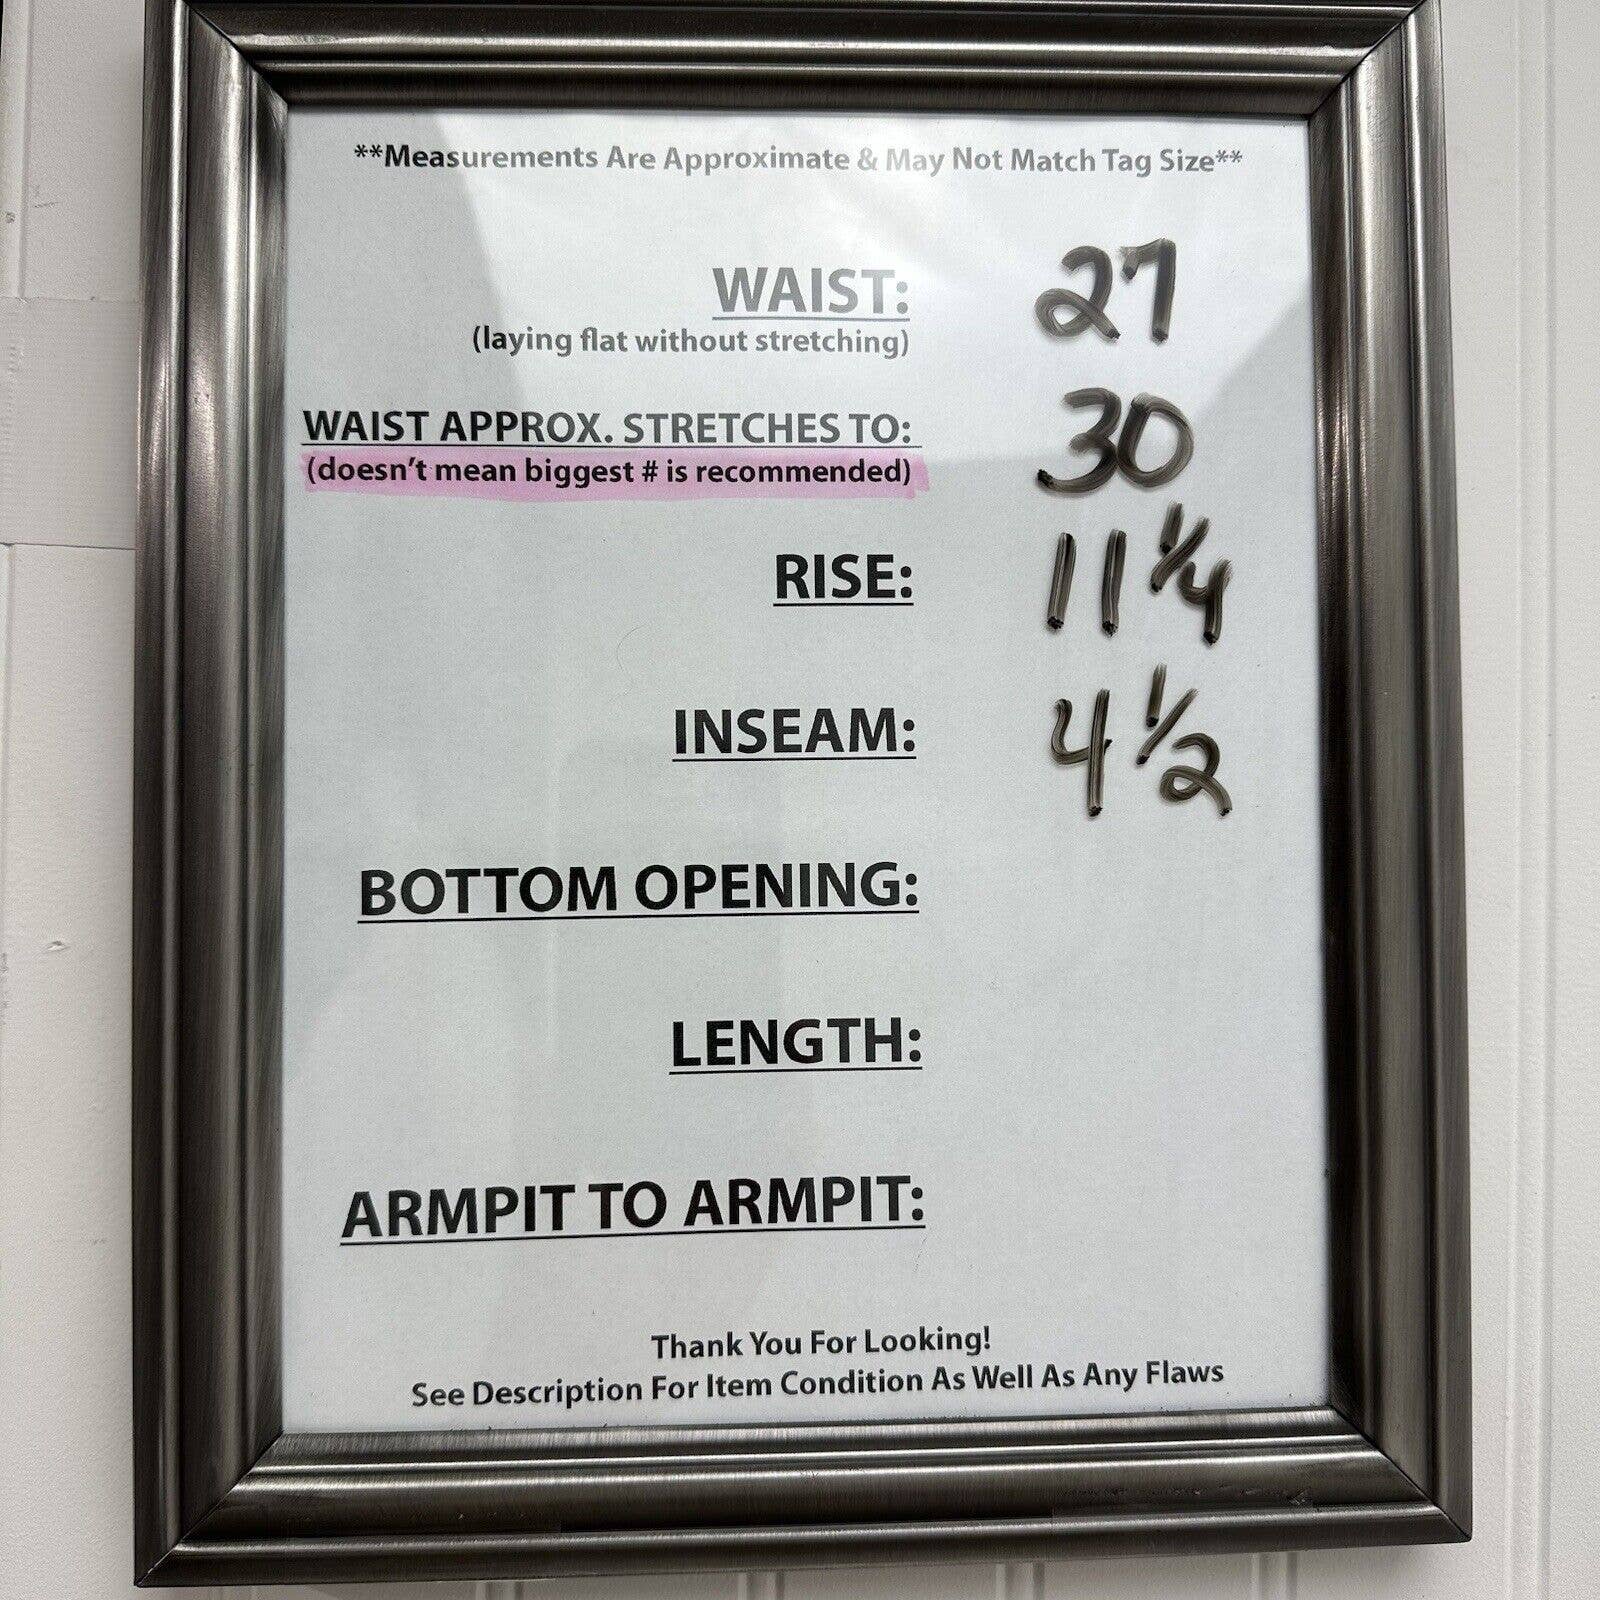 **Measurements Are Approximate & May Not Match Tag Size**
WAIST: 27
(laying flat without stretching)
WAIST APPROX. STRETCHES TO: 30
(doesn't mean biggest # is recommended)
RISE: 11 1/4
INSEAM: 4 1/2
BOTTOM OPENING:
LENGTH:
ARMPIT TO ARMPIT:
Thank You For Looking!
See Description For Item Condition As Well As Any Flaws